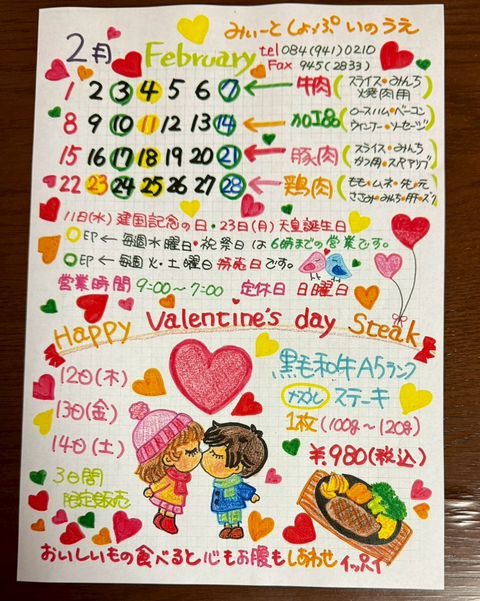 みぃーとしょっぷいのうえ
2月 February
tel 084(941)0210
Fax 945(2833)
1 2 3 4 5 6 7 ← 牛肉(スライス・みんち 焼肉用
8 9 10 11 12 13 14 ← 加工品(ロースハム・ベーコン ウィンナー・ソーセージ
15 16 17 18 19 20 21 ← 豚肉(スライス・みんち かつ用・スペアリブ
22 23 24 25 26 27 28 ← 鶏肉(もも・ムネ・先・元 ささみ・みんち・肝・ズリ
11日(水)建国記念の日・23日(月)天皇誕生日
EP ← 毎週水曜日・祝祭日は6時までの営業です。
EP ← 毎週火・土曜日特売日です。
営業時間 9:00〜7:00 定休日 日曜日
Happy Valentine's day Steak
12日(木)
13日(金)
14日(土)
3日間
限定販売
黒毛和牛A5ランク
ステーキ
1枚(100g〜120g)
¥980(税込)
おいしいもの食べると心もお腹もしあわせイッパイ